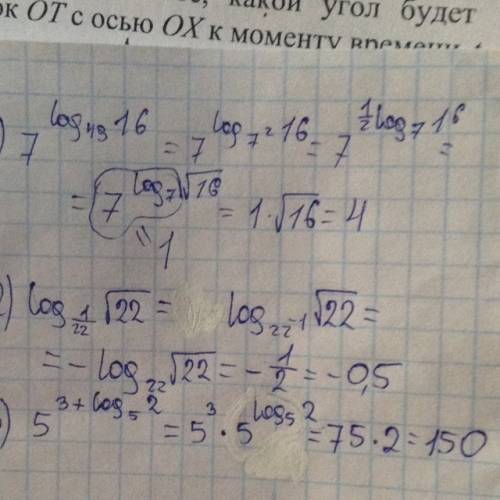 какой угол будет
ок OT с осью OX к моменту времени t
) 7^{log_{49} 16} = 7^{log_{7^2} 16} = 7^{\frac{1}{2} log_7 16} =
= 7^{log_7 \sqrt{16}} = 1 · \sqrt{16} = 4
" 1
2) log_{\frac{1}{22}} \sqrt{22} = log_{22^{-1}} \sqrt{22} =
= - log_{22} \sqrt{22} = - \frac{1}{2} = -0,5
) 5^{3 + log_5 2} = 5^3 · 5^{log_5 2} = 75 · 2 = 150